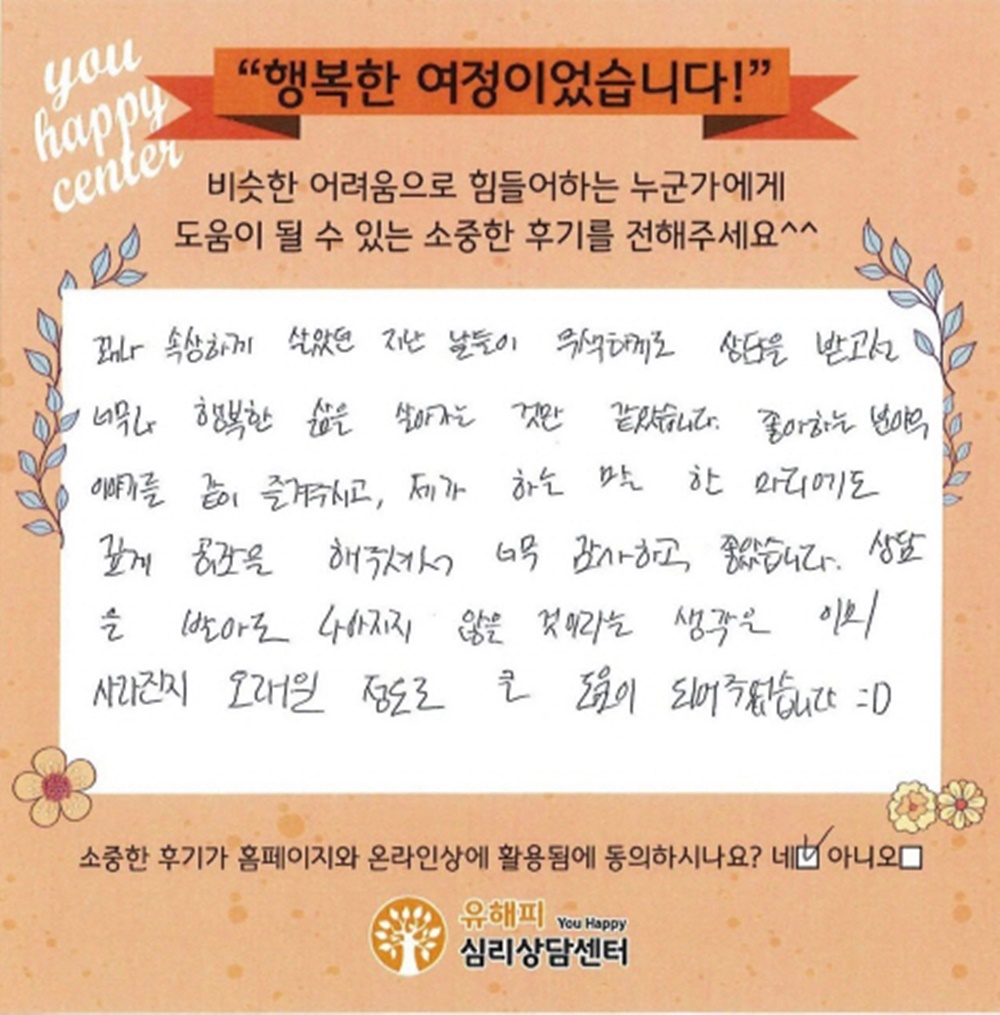 you
happy
center
“행복한 여정이었습니다!”
비슷한 어려움으로 힘들어하는 누군가에게
도움이 될 수 있는 소중한 후기를 전해주세요^^
꽤나 속상하게 살았던 지난 날들이 무색하게도 상담을 받고서
너무나 행복한 삶을 살아가는 것만 같았습니다. 좋아하는 분야의
이야기를 같이 즐겨주시고, 제가 하는 말 한 마디에도
깊게 공감을 해주셔서 너무 감사하고, 좋았습니다. 상담
을 받아도 나아지지 않을 것이라는 생각은 이미
사라진지 오래일 정도로 큰 도움이 되어주었습니다 =D
소중한 후기가 홈페이지와 온라인상에 활용됨에 동의하시나요? 네 아니오
유해피 You Happy
심리상담센터